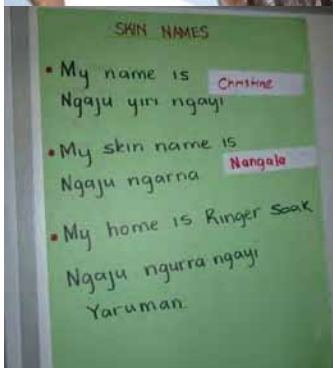 SKIN NAMES
• My name is Christine
Ngaju yiri ngayi
• My skin name is
Ngaju ngarna Nangala
• My home is Ringer Soak
Ngaju ngurra ngayi
Yaruman